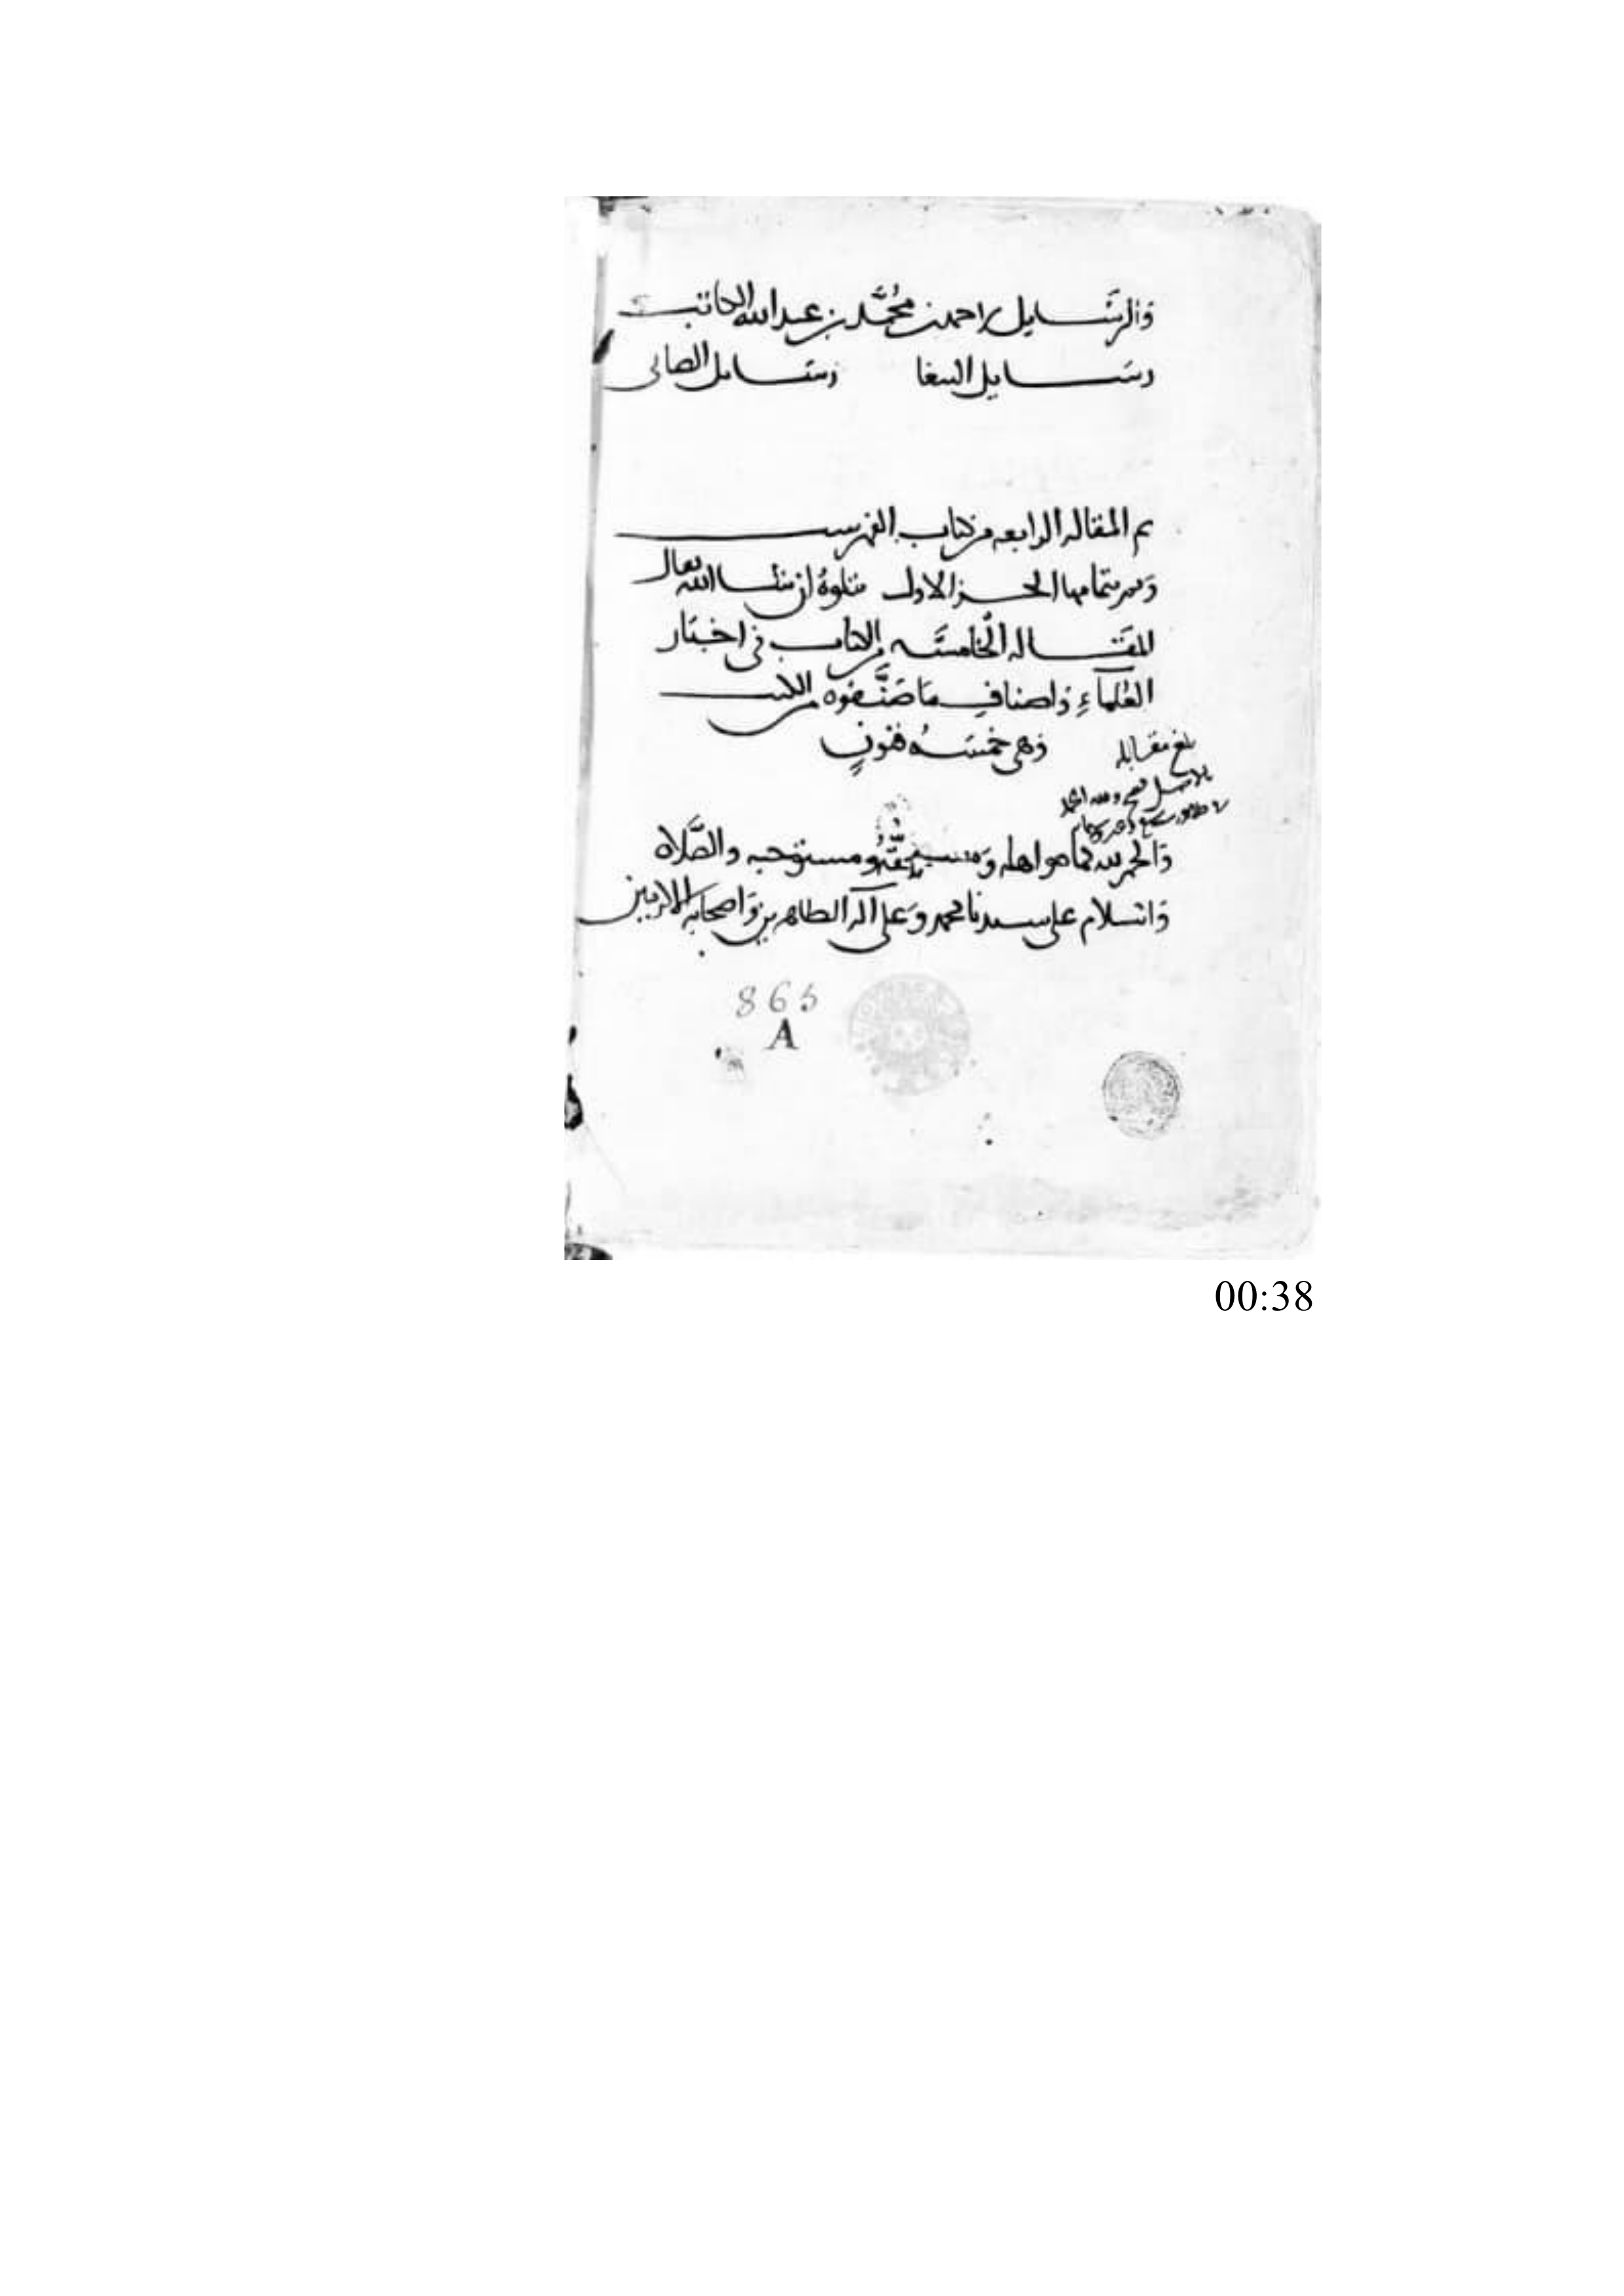 والرسايل احمد بن محمد بن عبد الله الكاتب
رسايل الببغا رسايل الصابى
تم المقاله الرابعه من كتاب الفهرست
وتم بتمامها الجزء الاول يتلوه ان شا الله تعالى
المقاله الخامسه من الكتاب فى اخبار
العلماء واصناف ما صنفوه من الكتب
وهى خمسه فنون
بلغ مقابله
والحمد لله كما هو اهله ومستحقه ومستوجبه والصلاه
والسلام على سيدنا محمد وعلى آله الطاهرين واصحابه الاكرمين
865
A
00:38